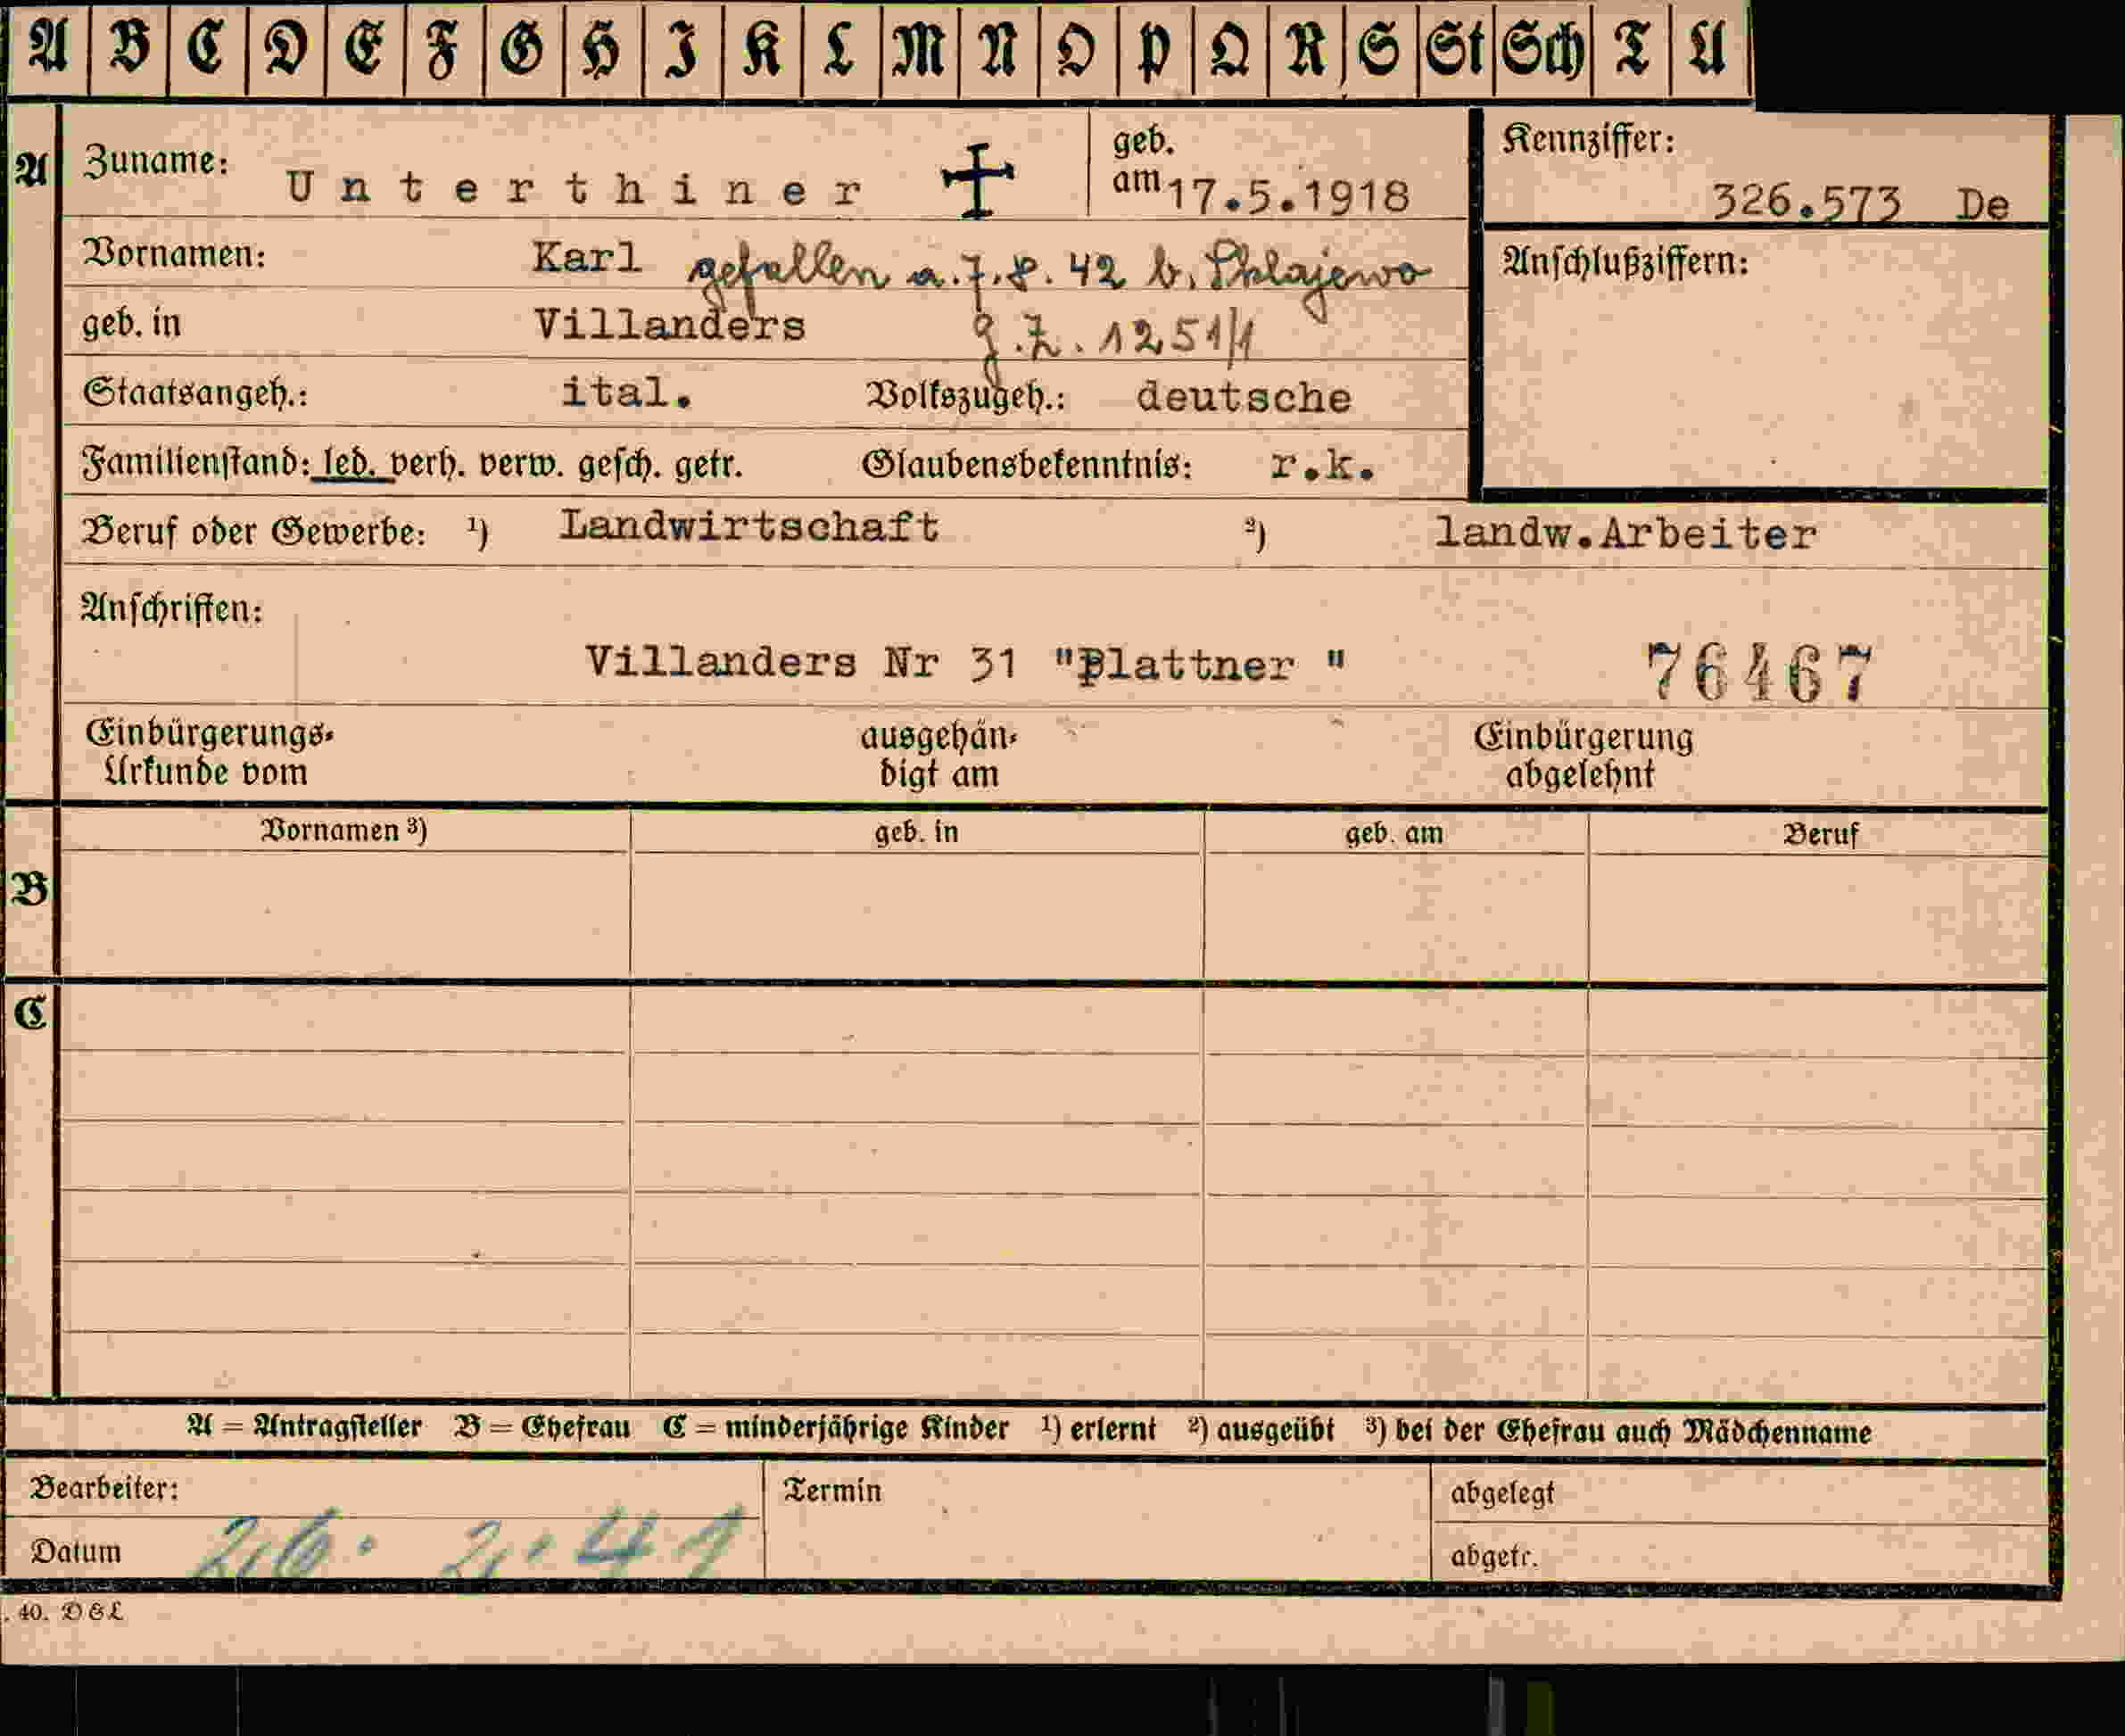 A B C D E F G H I K L M N O P Q R S St Sch T U
A Zuname: Unterthiner geb. am 17.5.1918 Kennziffer: 326.573 De
Vornamen: Karl gefallen a. 7.8.42 b. Anschlußziffern:
geb. in Villanders g.Z. 1251/1
Staatsangeh.: ital. Volkszugeh.: deutsche
Familienstand: led. verh. verw. gesch. getr. Glaubensbekenntnis: r.k.
Beruf oder Gewerbe: ¹) Landwirtschaft ²) landw.Arbeiter
Anschriften:
Villanders Nr 31 "Plattner " 76467
Einbürgerungs- ausgehän- Einbürgerung
Urkunde vom digt am abgelehnt
Vornamen ³) geb. in geb. am Beruf
B
C
A = Antragsteller B = Ehefrau C = minderjährige Kinder ¹) erlernt ²) ausgeübt ³) bei der Ehefrau auch Mädchenname
Bearbeiter: Termin abgelegt
Datum 26. 2. 41 abgetr.
. 40. D & L